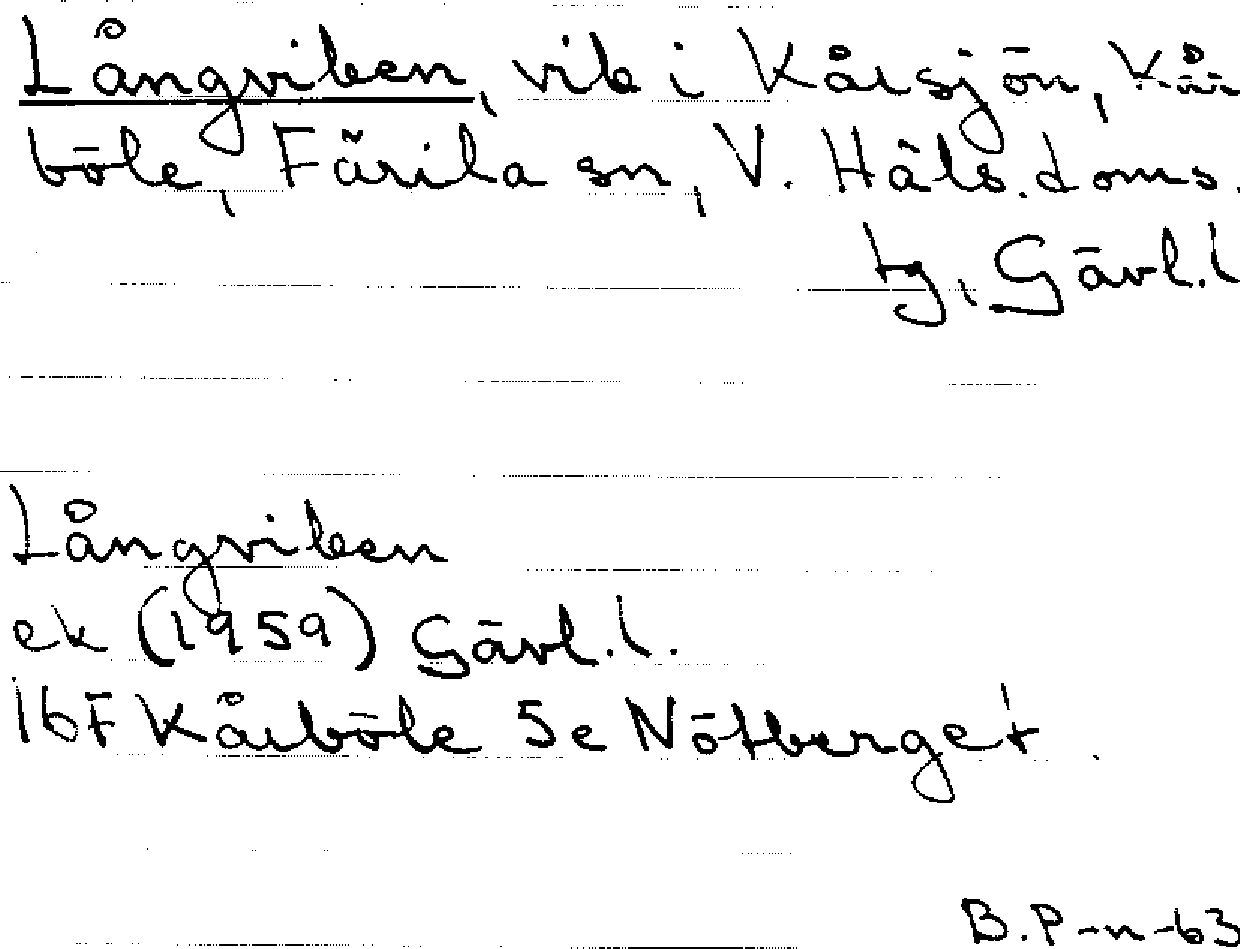 Långviken, vik i Kårsjön, Kår
böle, Färila sn, V. Häls. doms.
tg, Gävl.l
Långviken
ek (1959) Gävl.l.
16F Kårböle 5e Nötberget
B.P-n-63